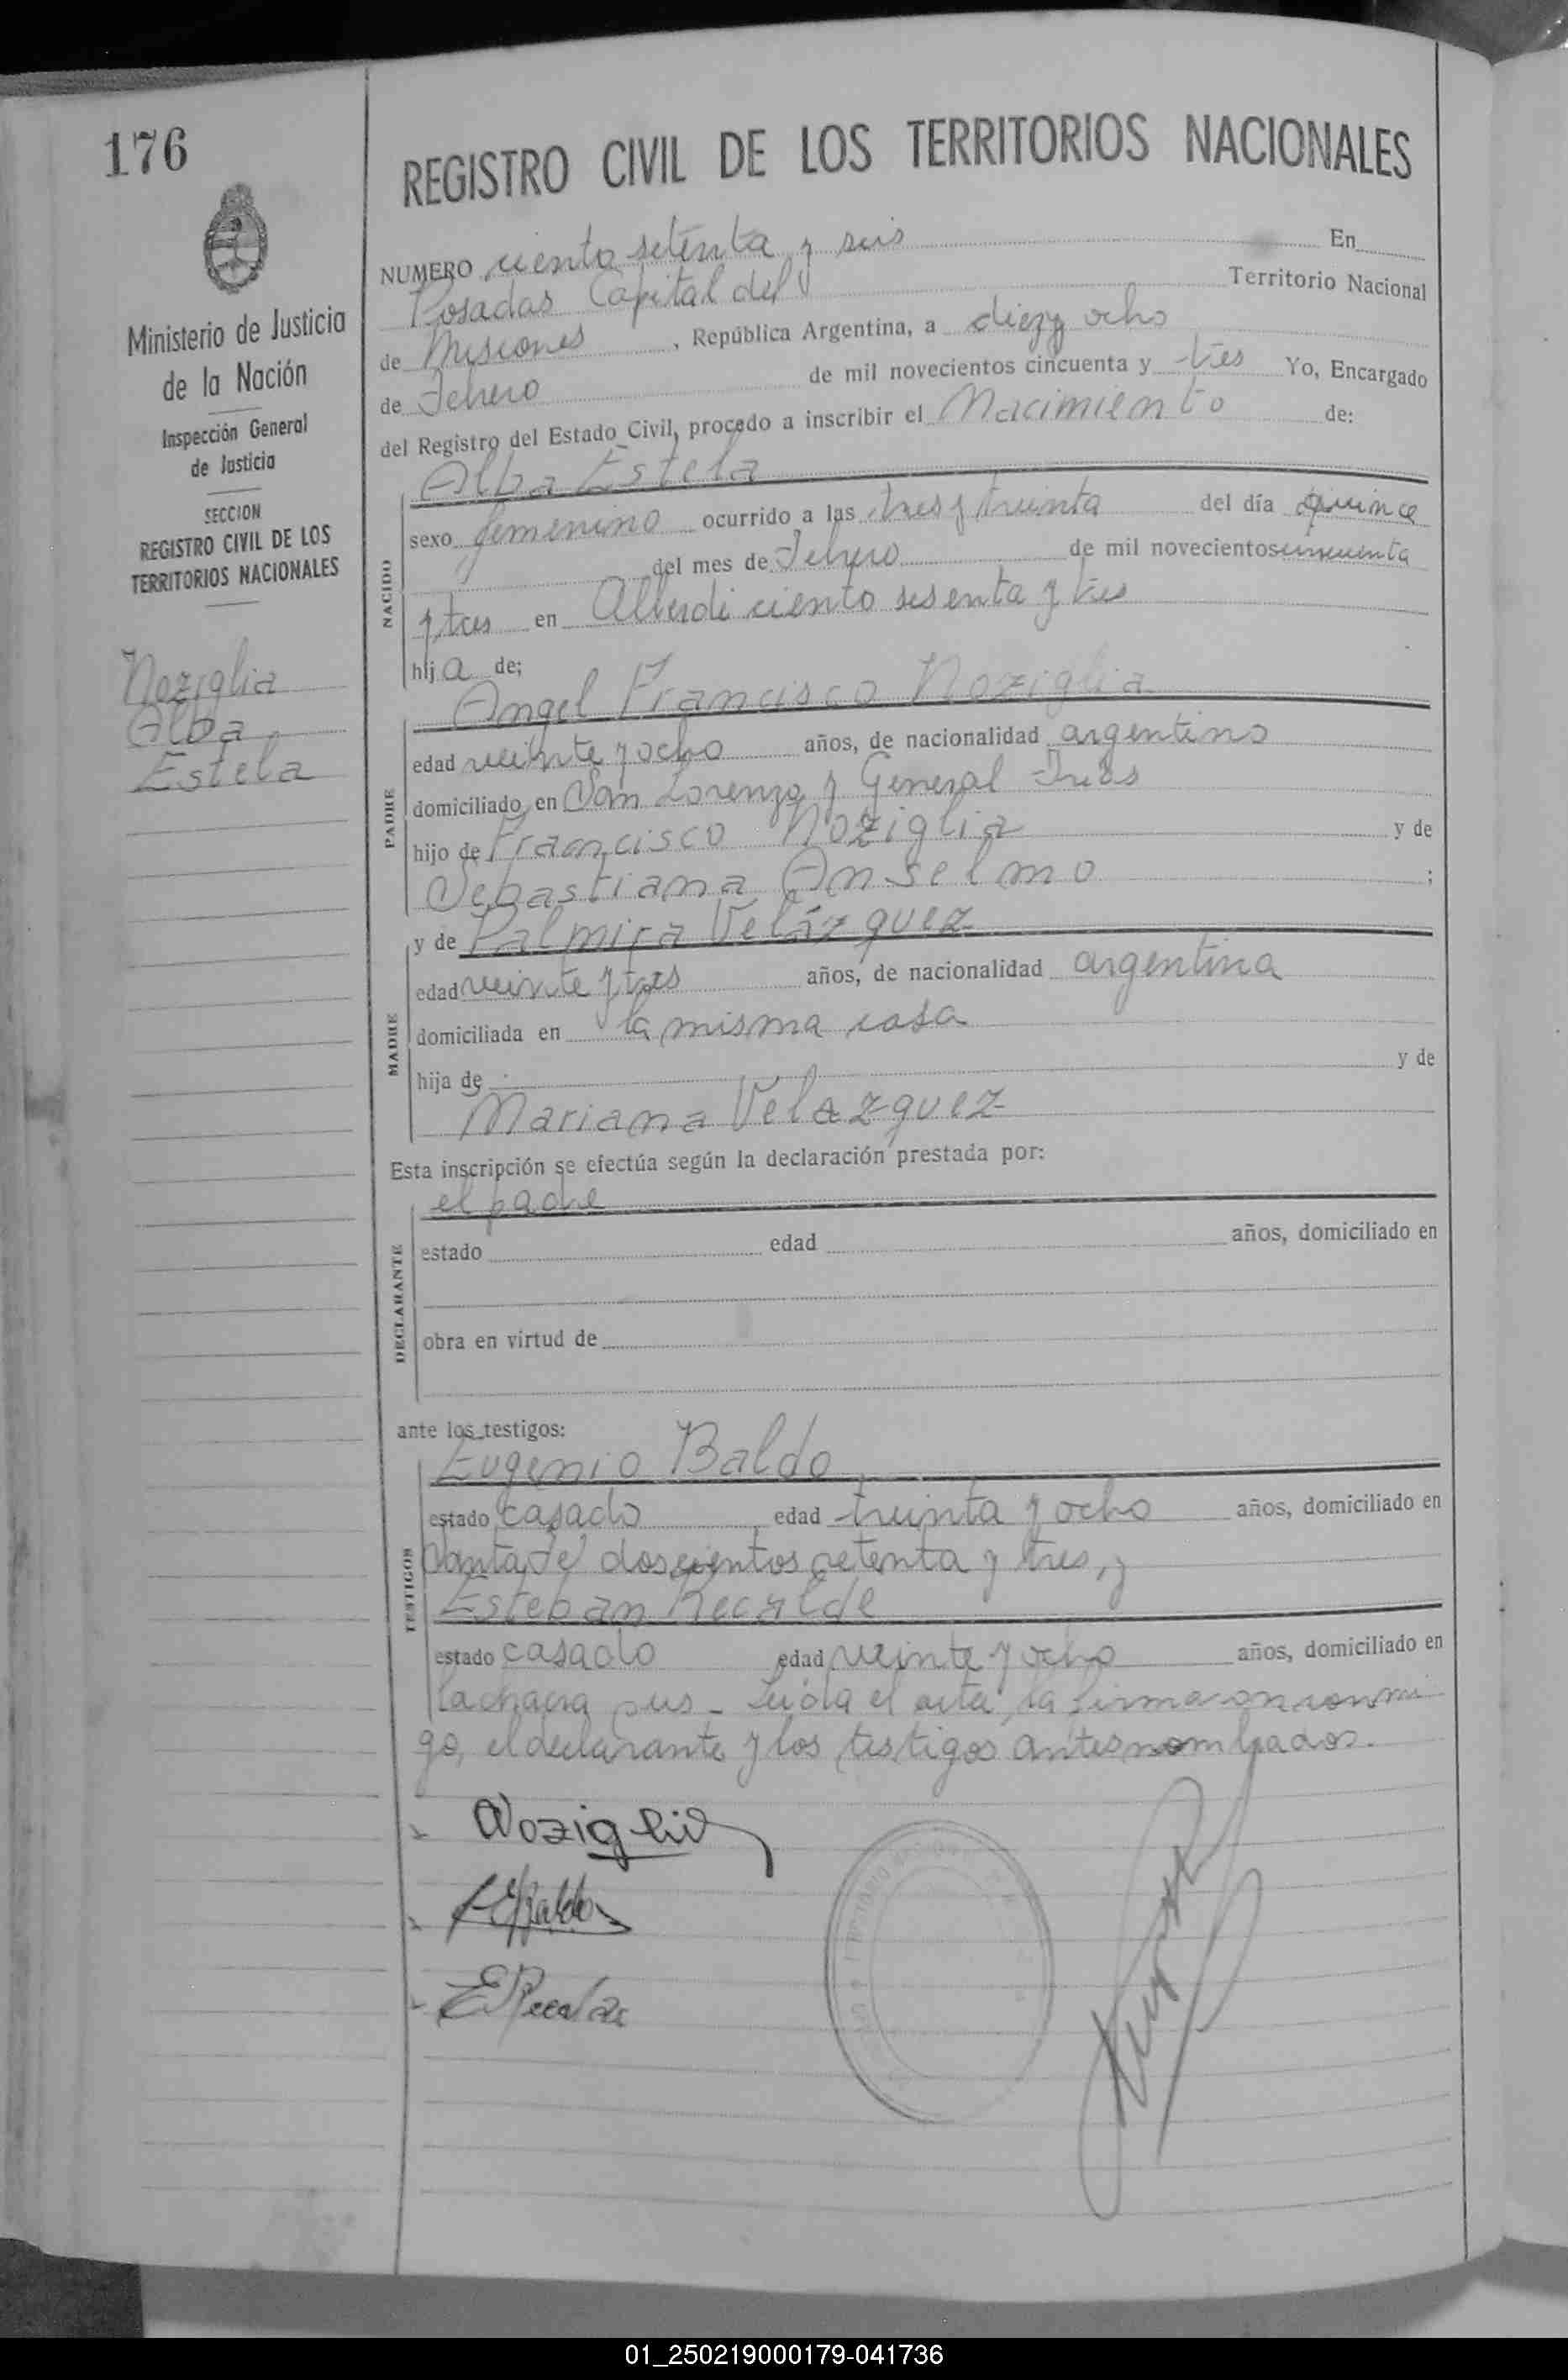 176
Ministerio de Justicia
de la Nación
Inspección General
de Justicia
SECCION
REGISTRO CIVIL DE LOS
TERRITORIOS NACIONALES
Noziglia
Alba
Estela
REGISTRO CIVIL DE LOS TERRITORIOS NACIONALES
NUMERO ciento setenta y seis En
Posadas Capital del Territorio Nacional
de Misiones, República Argentina, a diez y ocho
de Febrero de mil novecientos cincuenta y tres Yo, Encargado
del Registro del Estado Civil, procedo a inscribir el Nacimiento de:
Alba Estela
NACIDO
sexo femenino ocurrido a las tres y treinta del día quince
del mes de Febrero de mil novecientos cincuenta
y tres en Alberdi ciento sesenta y tres
hija de;
Angel Francisco Noziglia
PADRE
edad veinte y ocho años, de nacionalidad argentino
domiciliado en San Lorenzo y General
hijo de Francisco Noziglia y de
Sebastiana Anselmo ;
y de Palmira Velázquez
MADRE
edad veinte y tres años, de nacionalidad argentina
domiciliada en la misma casa
hija de y de
Mariana Velazquez
Esta inscripción se efectúa según la declaración prestada por:
el padre
DECLARANTE
estado edad años, domiciliado en
obra en virtud de
ante los testigos:
Eugenio Baldo
TESTIGOS
estado casado edad treinta y ocho años, domiciliado en
Santa Fé doscientos setenta y tres, y
Esteban Recalde
estado casado edad veinte y ocho años, domiciliado en
la chacra seis - Leída el acta, la firmaron conmi
go, el declarante y los testigos antes nombrados.
Noziglia
Baldo
E Recalde
01_250219000179-041736